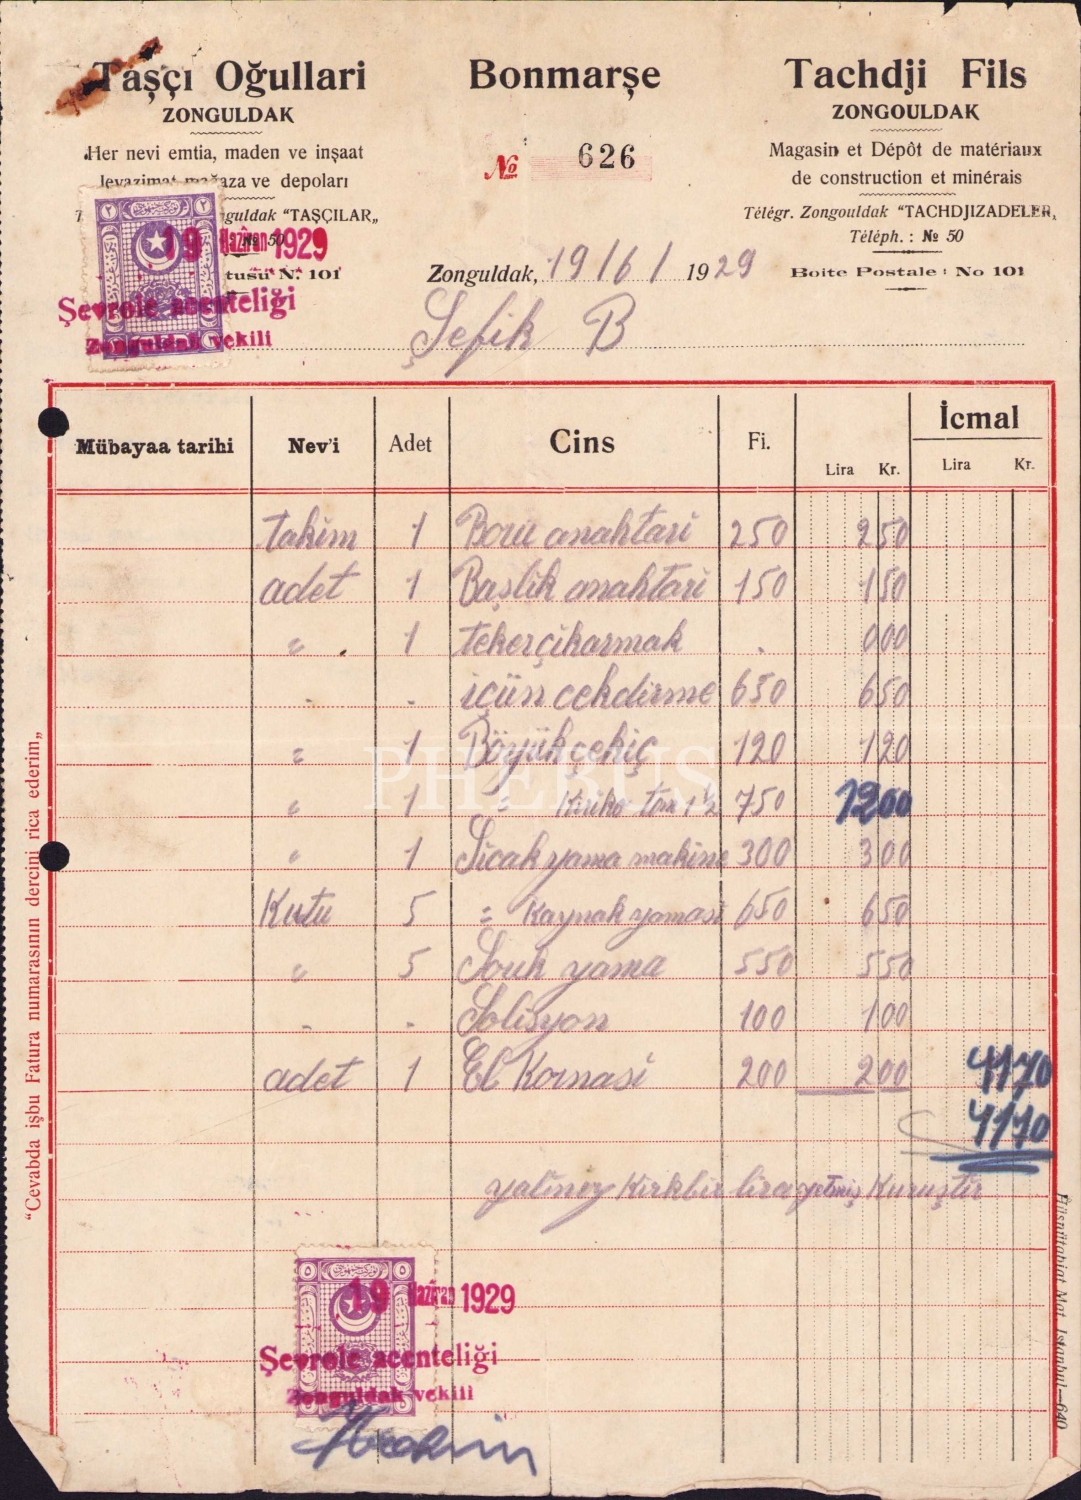 Taşçı Oğullari
ZONGULDAK
Her nevi emtia, maden ve inşaat
levazimat mağaza ve depoları
nguldak "TAŞÇILAR„
№ 50
tusu N. 101
Bonmarşe
№ 626
Tachdji Fils
ZONGOULDAK
Magasin et Dépôt de matériaux
de construction et minérais
Télégr. Zongouldak "TACHDJIZADELER,
Téléph. : № 50
Boite Postale : No 101
19 Haziran 1929
Şevrole acenteliği
Zonguldak vekili
Zonguldak, 19/6/1929
Şefik B
Mübayaa tarihi Nev'i Adet Cins Fi. Lira Kr. İcmal Lira Kr.
takim 1 Boru anahtari 250 250
adet 1 Başlik anahtari 150 150
〃 1 tekerçikarmak . 000
. . içün cekdirme 650 650
〃 1 Böyük çekiç 120 120
〃 1 〃 Kiriko ton 1½ 750 1200
〃 1 Sicak yama makine 300 300
Kutu 5 〃 Kaynak yamasi 650 650
〃 5 Souk yama 550 550
. . Solisyon 100 100
adet 1 El Kornasi 200 200 4170
4170
yaliniz Kirkbir lira yetmiş Kuruştir
PHEBUS
19 Haziran 1929
Şevrole acenteliği
Zonguldak vekili
"Cevabda işbu Fatura numarasının dercini rica ederim„
Hüsnütabiat Mat. Istanbul—640